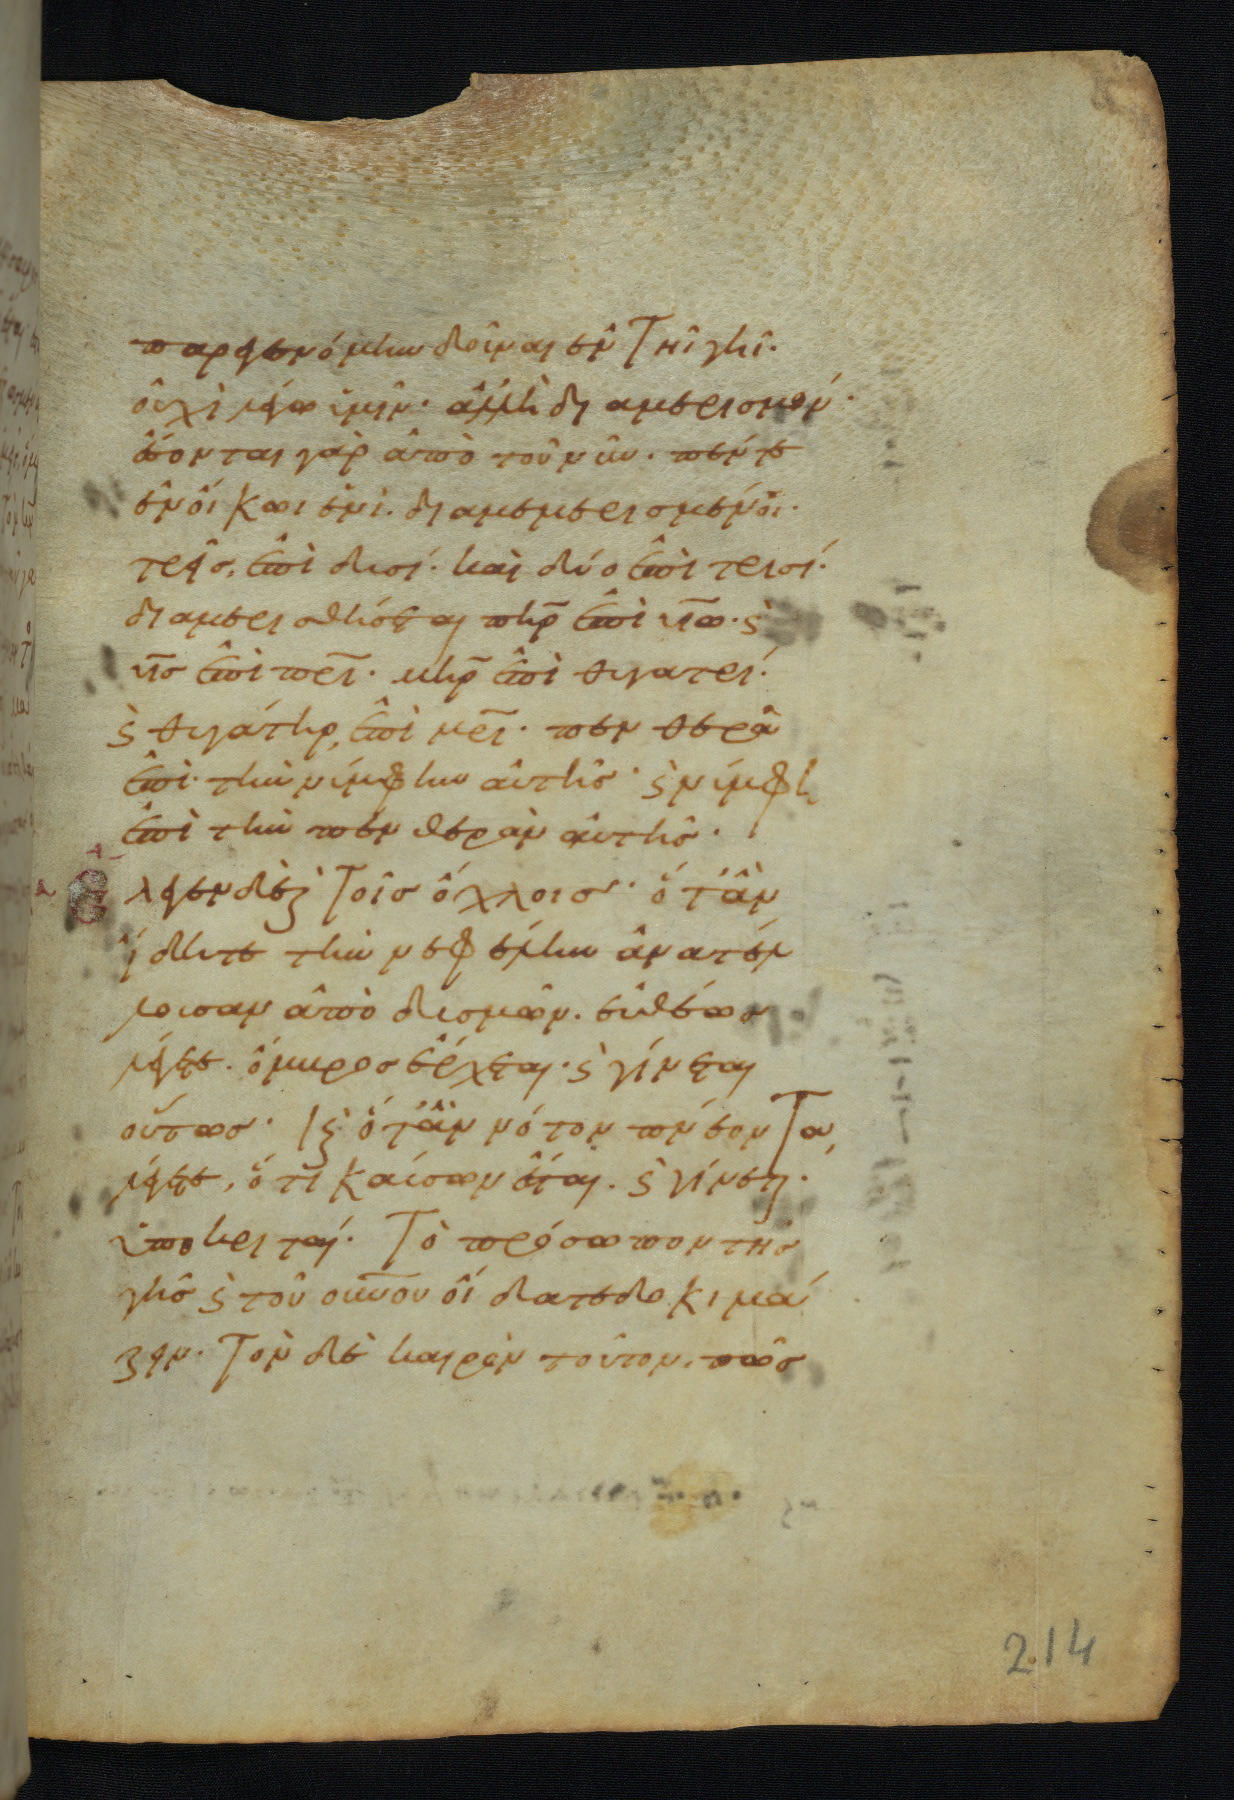 παρεγενόμην δοῦναι ἐν τῆι γῆι·
οὐχὶ λέγω ὑμῖν· ἀλλὴ διαμερισμόν·
ἔσονται γὰρ ἀπὸ τοῦ νῦν· πέντε
ἐν οἴκωι ἑνὶ· διαμεμερισμένοι·
τρεῖς, ἐπὶ δυσί· καὶ δύο ἐπὶ τρισί·
διαμερισθήσεται πηρ̅ ἐπὶ υι̅ω· ϛ̀
υι̅ς ἐπὶ πρι̅· μηρ̅ ἐπὶ θυγατρί·
ϛ̀ θυγάτηρ, ἐπὶ μρι̅· πενθερὰ
ἐπὶ τὴν νύμφην αὐτῆς· ϛ̀ νύμφη
ἐπὶ τὴν πενθερὰν αὐτῆς·
λεγεν δὲ ϗ τοῖς ὄχλοις· ὅτ' ἂν
ἴδητε τὴν νεφέλην ἀνατέλ
λουσαν ἀπὸ δυσμῶν· εὐθέως
λέγετε· ὄμβρος ἔρχεται· ϛ̀ γίνεται
οὕτως· ϗ ὅτ' ἂν νότον πνέοντα,
λέγετε, ὅτι καύσων ἔσται· ϛ̀ γίνεται·
ὑποκριταί· τὸ πρόσωπον τῆς
γῆς ϛ̀ τοῦ ουν̅ου οἴδατε δοκιμά
ζειν· τὸν δὲ καιρὸν τοῦτον, πῶς
214